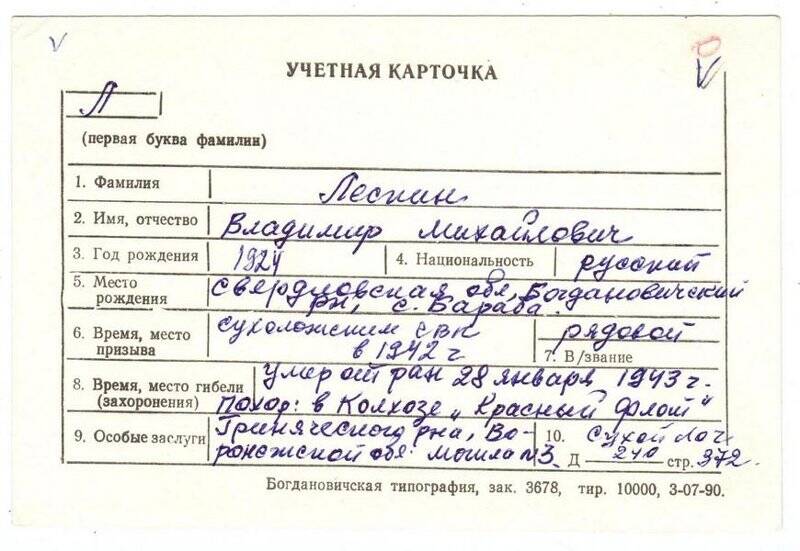 УЧЕТНАЯ КАРТОЧКА
Л
(первая буква фамилии)
1. Фамилия Леснин
2. Имя, отчество Владимир Михайлович
3. Год рождения 1924 4. Национальность русский
5. Место рождения Свердловская обл, Богдановичский
рн, с. Бараба.
6. Время, место призыва Сухоложским РВК
в 1942 г
7. В/звание рядовой
8. Время, место гибели (захоронения) умер от ран 28 января 1943 г.
Похор: в Колхозе „Красный Флот"
9. Особые заслуги рна, Во-
ронежской обл. могила №3.
10. Сухой Лог
Д 240 стр. 372.
Богдановичская типография, зак. 3678, тир. 10000, 3-07-90.